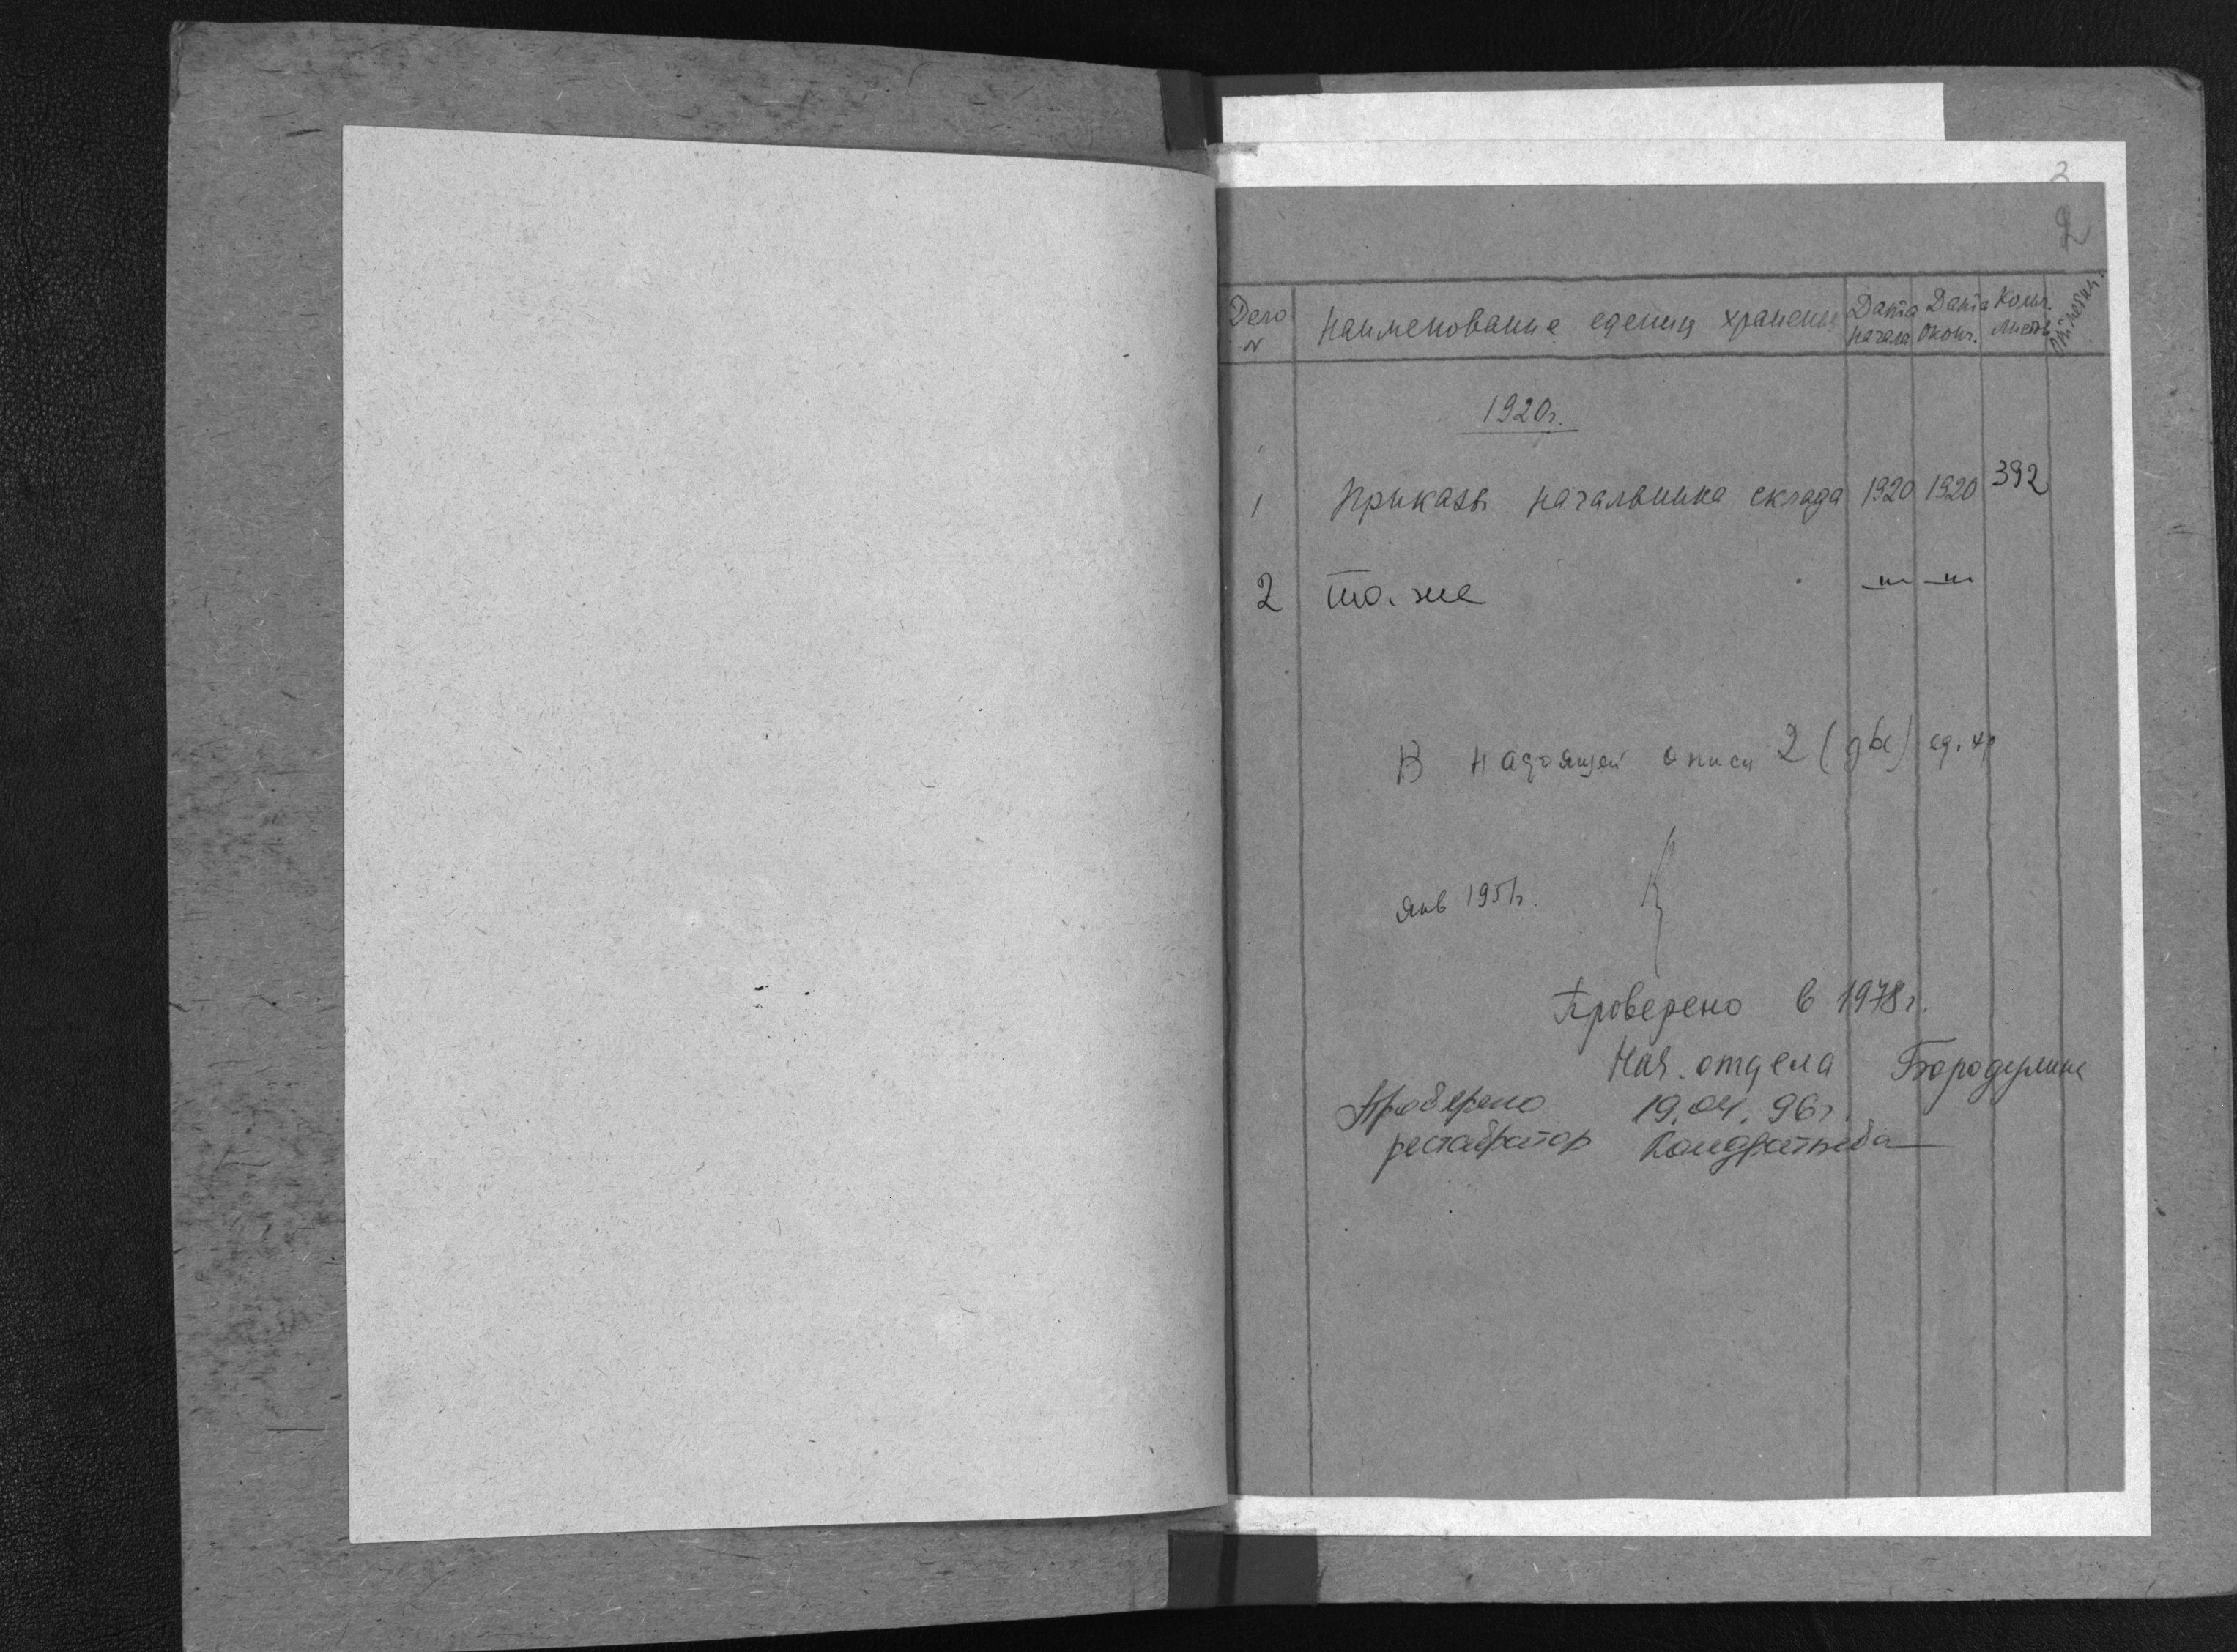 3
2
Дело N Наименование едениц хранения Дата начала Дата оконч. Колич. листов Отметки
1920г.
1 Приказы начальника склада 1920 1920 392
2 то-же —"— —"—
В настоящей описи 2 (две) ед. хр
янв 1951г.
Проверено в 1978г.
Нач. отдела Бородулина
Проверено 19.04.96г.
реставратор Кондратьева